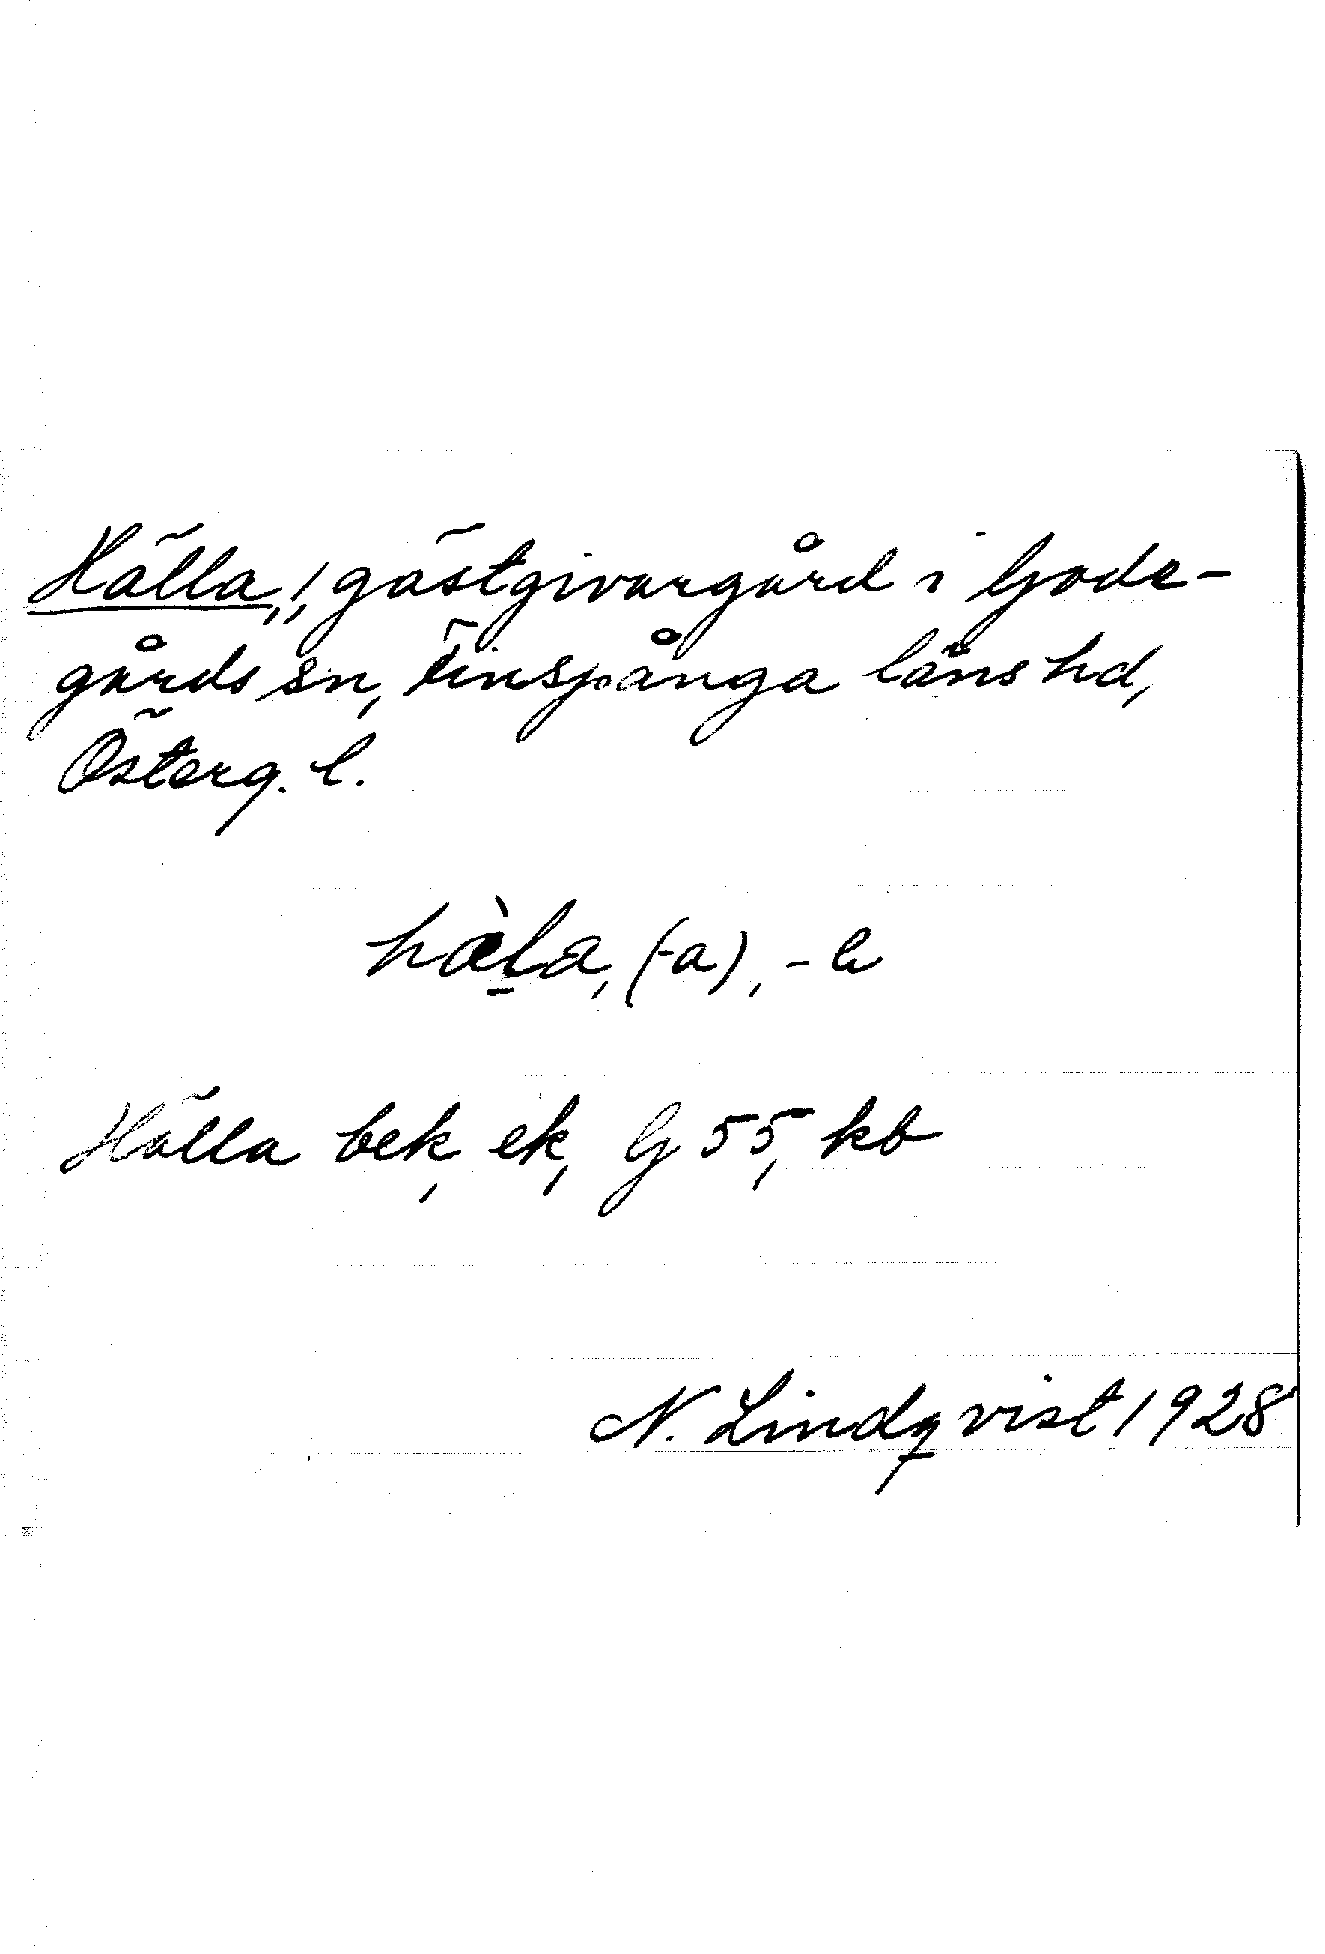 Hälla, !, gästgivargård i Gode-
gårds sn, Finspånga läns hd,
Österg. l.
hæ̀la, (-a), -
Hälla bek, ek, G 55, kb
N. Lindqvist 1928